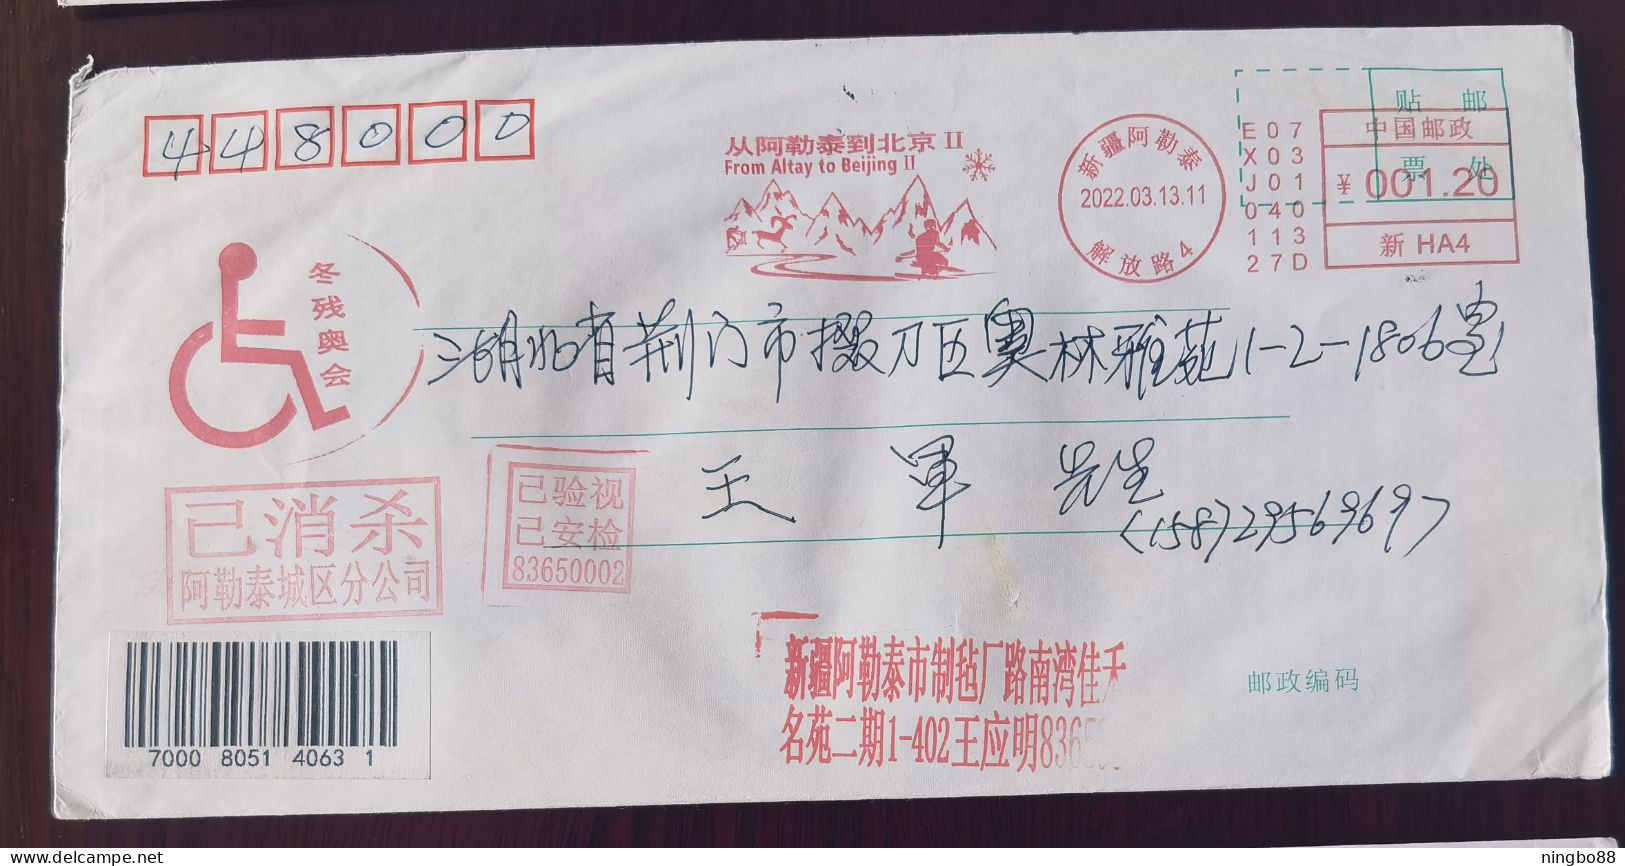 448000
从阿勒泰到北京II
From Altay to Beijing II
新疆阿勒泰
2022.03.13.11
解放路4
E07
X03
J01
040
113
27D
贴 邮
票 处
中国邮政
¥ 001.20
新 HA4
冬残奥会
湖北省荆门市掇刀区奥林雅苑1-2-1806室
王 军 先生
(158729569697)
已消杀
阿勒泰城区分公司
已验视
已安检
83650002
7000 8051 4063 1
新疆阿勒泰市制毡厂路南湾佳禾
名苑二期1-402王应明8365
邮政编码
delcampe.net
ningbo88